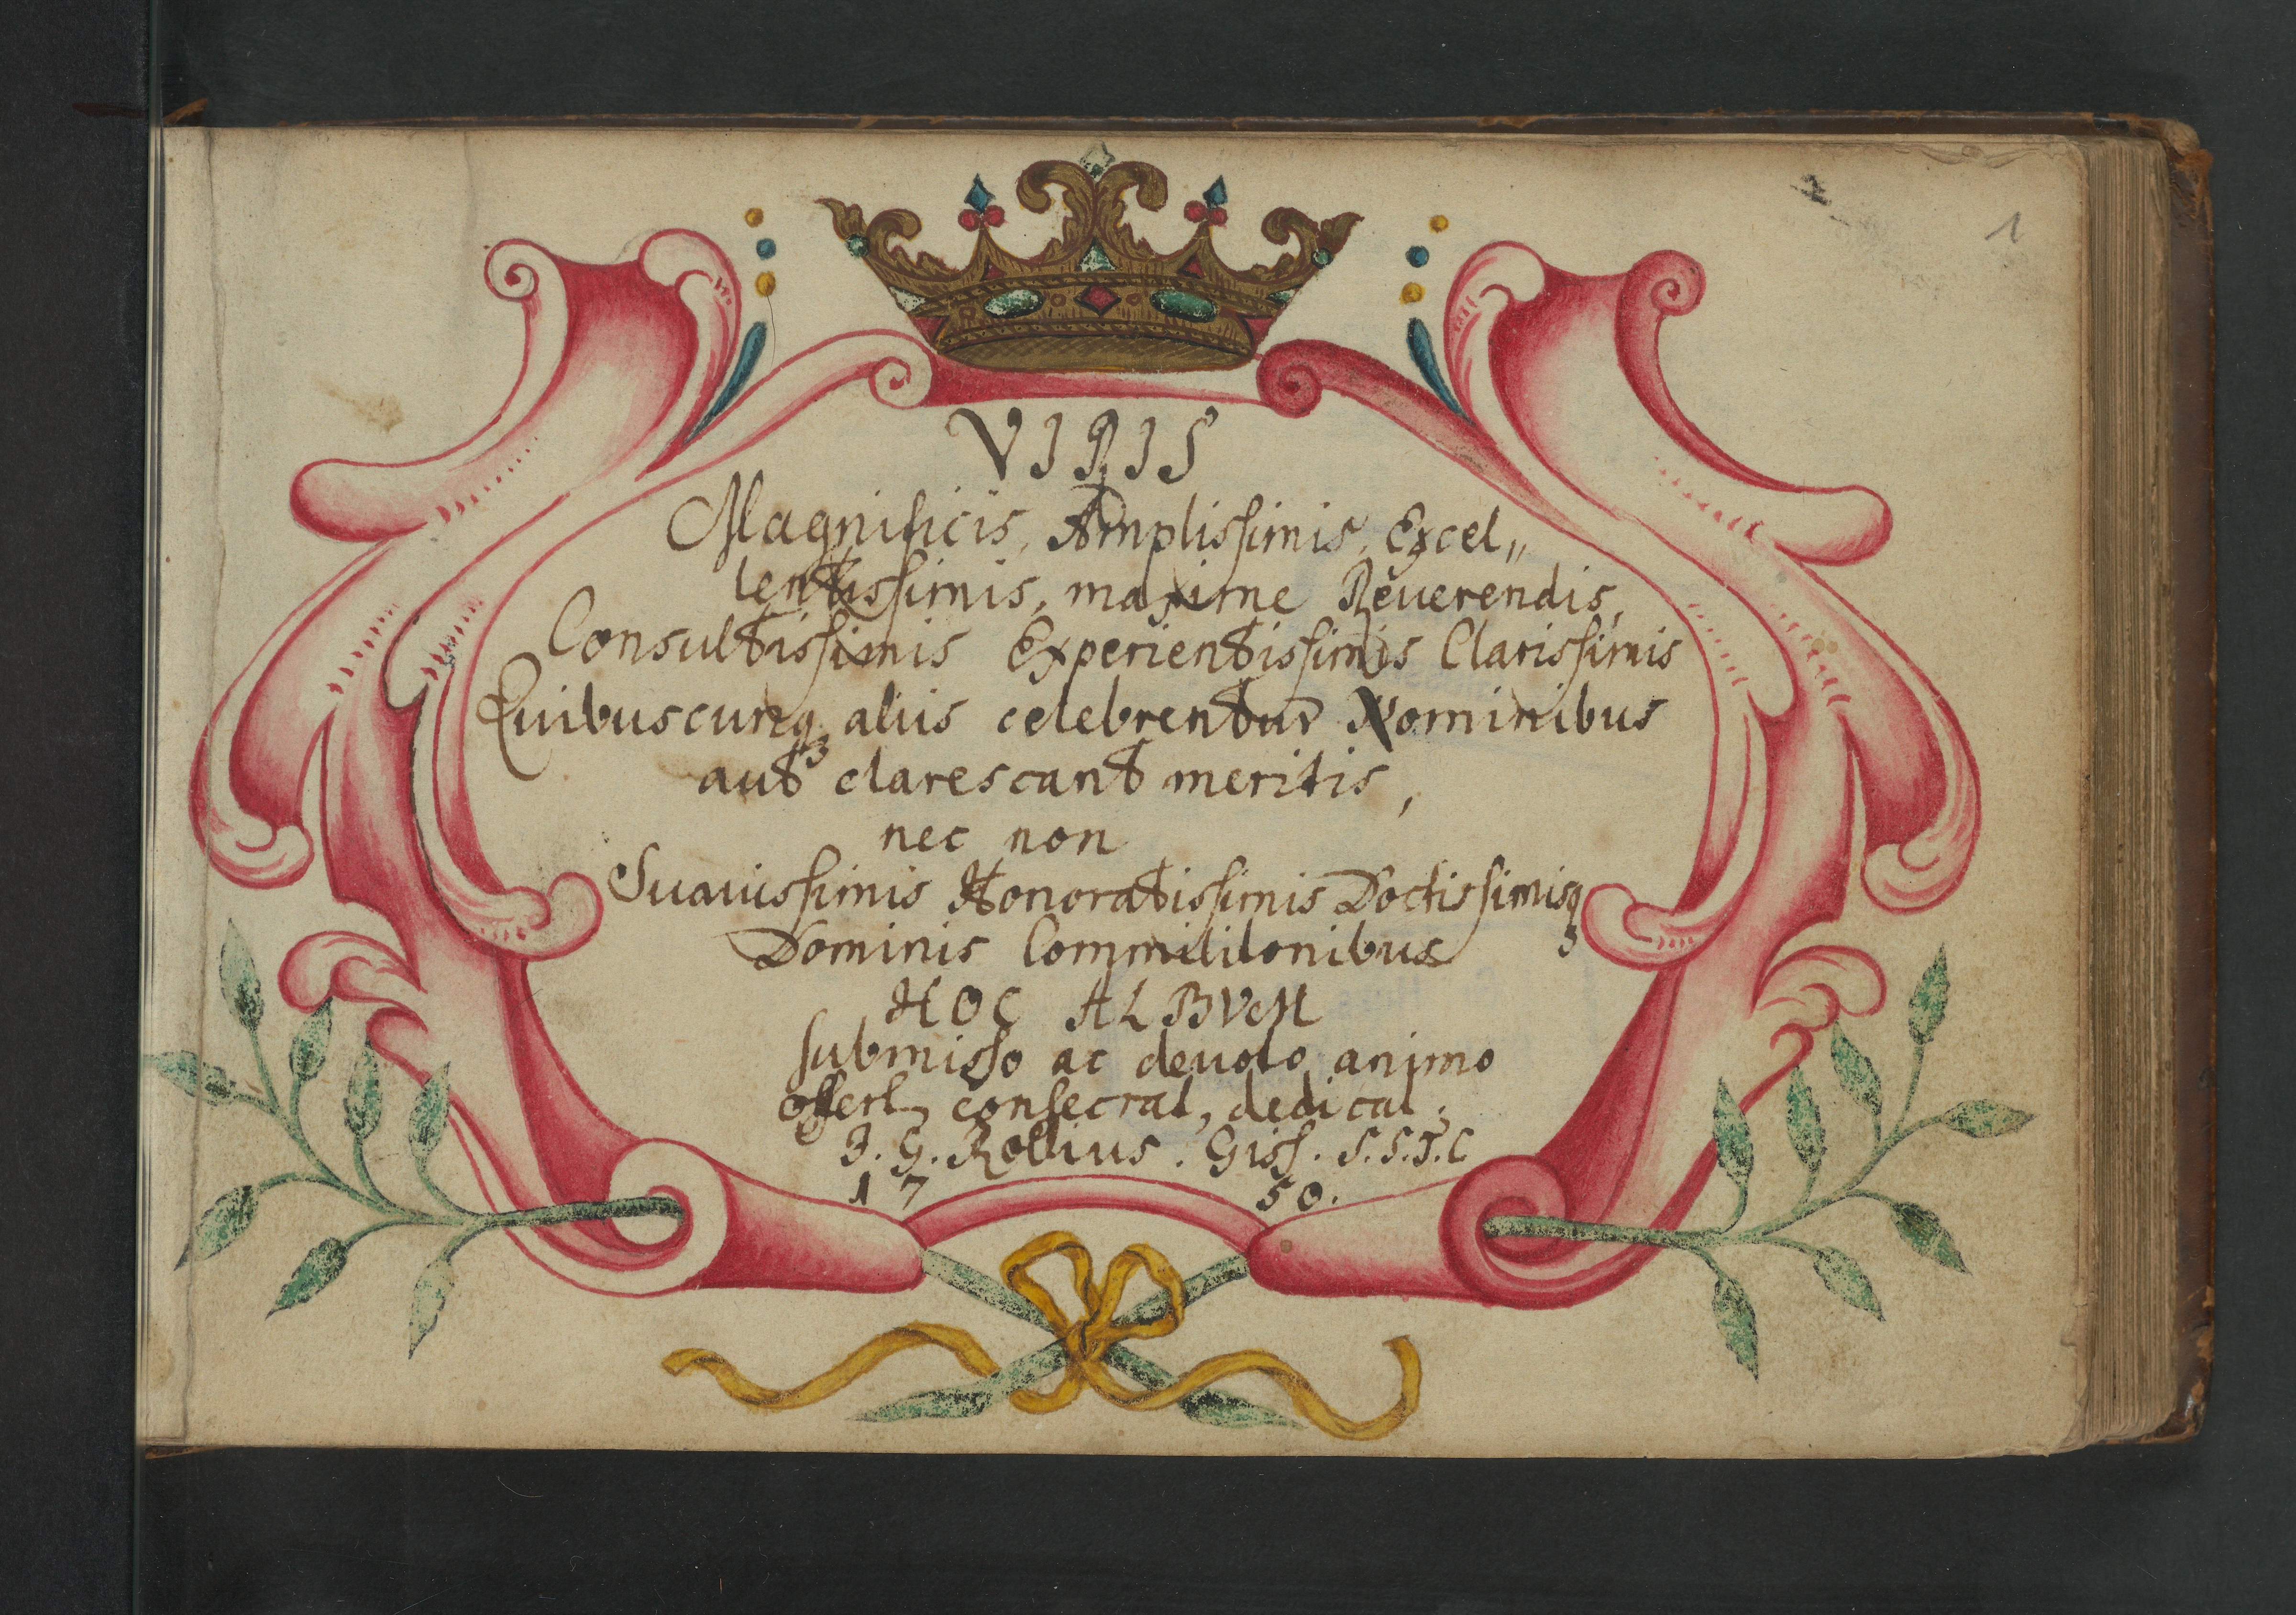 1
VIRIS
Magnificis, Amplissimis, Excel„
lentissimis, maxime Reuerendis,
Consultissimis Experientissimis Clarissimis
Quibuscunqꝫ aliis celebrentur Nominibus
aut clarescant meritis,
nec non
Suauissimis Honoratissimis Doctissimisqꝫ
Dominis Commilitonibus
HOC ALBVM
submisso ac deuoto animo
offert, consecrat, dedicat,
J. G. Rollius. Giss. S.S.T.C
1750.